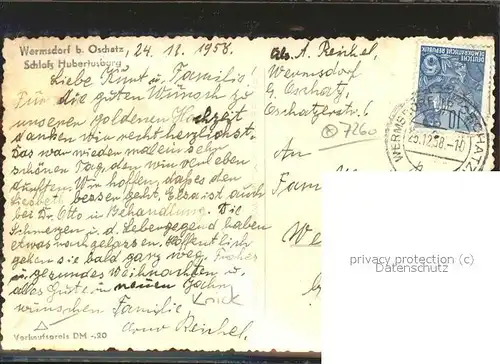 Wermsdorf b. Oschatz,
Schloß Hubertusburg
24.12.1958.
Liebe Kunt u. Familie!
Für die guten Wünsch zu
unserer goldenen Hochzeit
danken wir recht herzlichst.
Das war wieder mal ein sehr
schönen Tag, den wir verleben
durften. Wir hoffen, daß es den
Liesbeth besser geht. Elsa ist auch
bei Dr. Otto in Behandlung. Die
Schmerzen u. d. Lebergegend haben
etwas nachgelassen. Hoffentlich
gehen sie bald ganz weg. Frohes
u. gesundes Weihnachten u.
alles Gute im neuen Jahr
wünschen Familie
Arno Reichel.
Knick
Verkaufspreis DM -.20
Abs. A. Reichel,
Wermsdorf
b. Oschatz,
Oschatzerstr. 6
7260
An
Fam
We
DEUTSCHE DEMOKRATISCHE REPUBLIK
10
WERMSDORF
OSCHATZ
25.12.58.-10
privacy protection (c)
Datenschutz